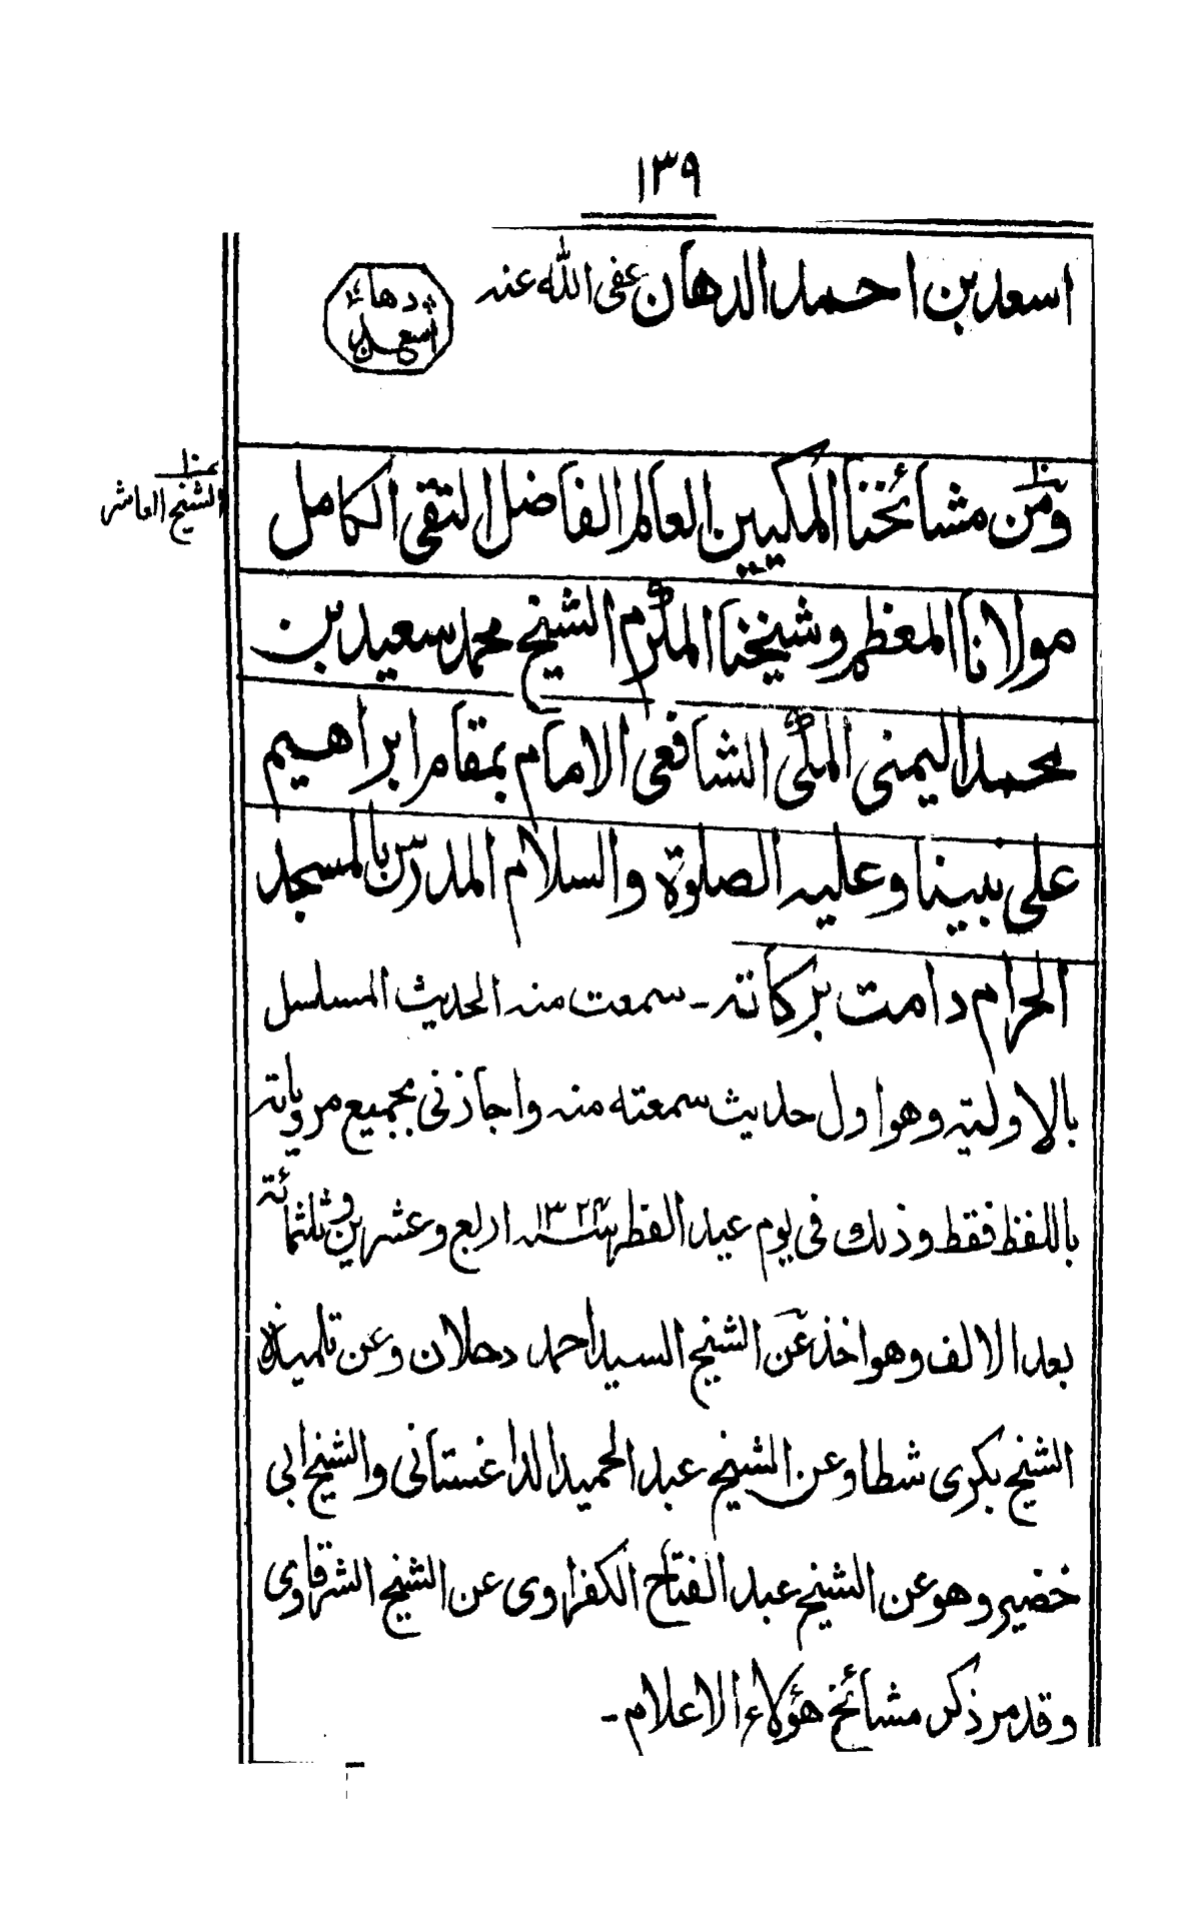 ۱۳۹
اسعد بن احمد الدهان عفى الله عنه
دهان
اسعد
نمبر ۱۰
الشيخ العاشر
ومن مشائخنا المكيين العالم الفاضل التقى الكامل
مولانا المعظم وشيخنا المكرم الشيخ محمد سعيد بن
محمد اليمنى المكى الشافعى الامام بمقام ابراهيم
على نبينا وعليه الصلوة والسلام المدرس بالمسجد
الحرام دامت بركاته ـ سمعت منه الحديث المسلسل
بالاولية وهو اول حديث سمعته منه واجازنى بجميع مروياته
باللفظ فقط وذلك فى يوم عيد الفطر سنه ۱۳۲۴ اربع وعشرين وثلثمائة
بعد الالف وهو اخذ عن الشيخ السيد احمد دحلان وعن تلميذه
الشيخ بكرى شطا وعن الشيخ عبد الحميد الداغستانى والشيخ ابى
خضير وهو عن الشيخ عبد الفتاح الكفراوى عن الشيخ الشرقاوى
وقد مر ذكر مشائخ هؤلاء الاعلام ـ